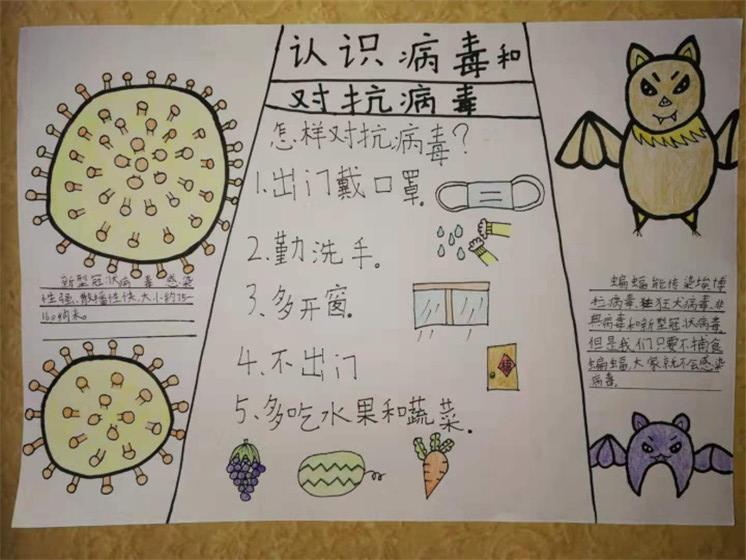 认识病毒和
对抗病毒
怎样对抗病毒?
1.出门戴口罩.
2.勤洗手。
3、多开窗。
4、不出门
5、多吃水果和蔬菜.
新型冠状病毒感染
性强、散播性快、大小约75-
160纳米。
蝙蝠能传染埃博
拉病毒、狂犬病毒、非
典病毒和新型冠状病毒。
但是我们只要不捕食
蝙蝠,大家就不会感染
病毒。